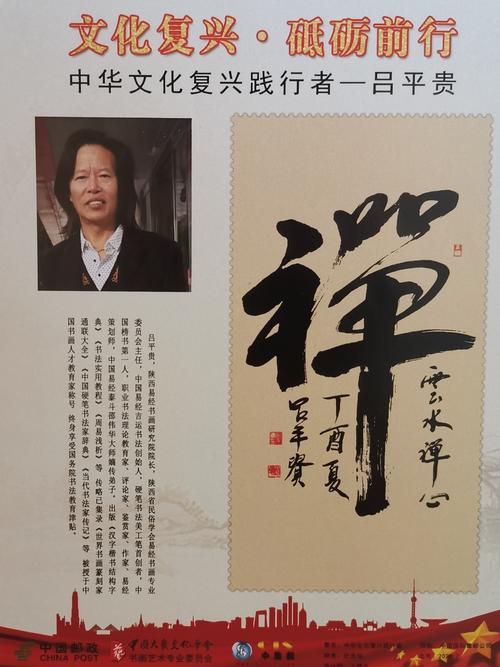 文化复兴·砥砺前行
中华文化复兴践行者—吕平贵
吕平贵,陕西易经书画研究院院长,陕西省民俗学会易经书画专业
委员会主任,中国易经吉运书法创始人,硬笔书法美工笔首创者 中
国榜书第一人,职业书法理论教育家、评论家、鉴赏家、作家、易经
策划师,中国易经泰斗邵伟华大师嫡传弟子。出版《汉字楷书结构字
典》《书法实用教程》《周易浅析》等 传略已集录《世界书画篆刻家
通联大全》《中国硬笔书法家辞典》《当代书法家传记》等 被授于中
国书画人才教育家称号 终身享受国务院书法教育津贴。
禪
雲水禅心
丁酉夏
吕平贵
中国邮政
CHINA POST
中国大众文化学会
书画艺术专业委员会